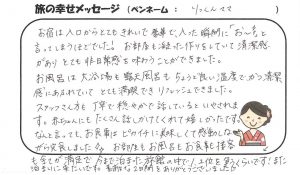 旅の幸せメッセージ (ペンネーム : りっくんママ )
お宿は入口からとてもきれいで豪華で、入った瞬間に「お〜」と
言ってしまうほどでした。お部屋も凝った作りをしていて清潔感
があり とても非日常感を味わうことができました。
お風呂は大浴場も露天風呂もちょうど良い温度でかつ清潔
感にあふれていて とても満喫でき リフレッシュできました。
スタッフさん方も 丁寧で穏やかで話していると いやされま
す。赤ちゃんにも たくさん話しかけてくれて嬉しかったです。
なんと言っても、お食事は ピカイチに美味しくて感動しな
がら完食しました。お部屋もお風呂もお食事も接客
も全てが満足で 今まで泊まった旅館の中で1,2位を争うくらいです!また
泊まりに来たいです。素敵な2日間をありがとうございました